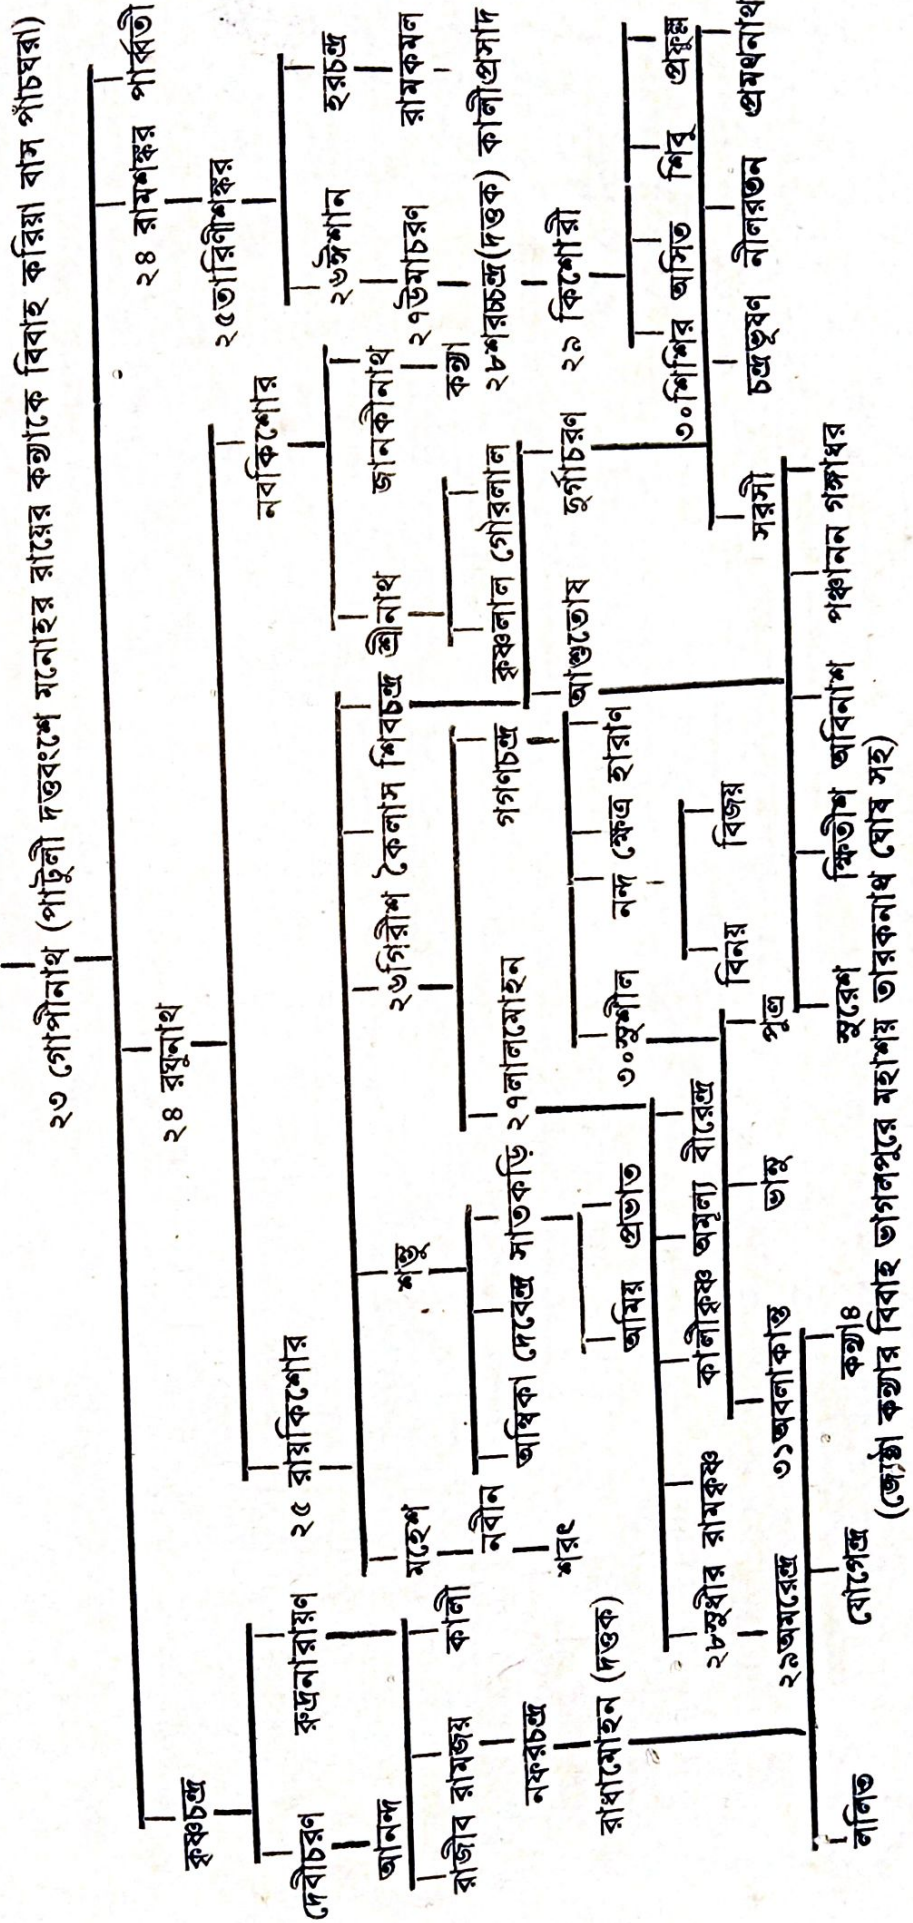 ২৩ গোপীনাথ (পাটুলী দত্তবংশে মনোহর রায়ের কন্যাকে বিবাহ করিয়া বাস পাঁচঘরা)
কৃষ্ণচন্দ্র ২৪ রঘুনাথ ২৪ রামশঙ্কর পার্ব্বতী
দেবীচরণ রুদ্রনারায়ণ ২৫ রায়কিশোর নবকিশোর ২৫তারিণীশঙ্কর
আনন্দ মহেশ শম্ভু ২৬গিরীশ কৈলাস শিবচন্দ্র শ্রীনাথ জানকীনাথ ২৬ঈশান হরচন্দ্র
রাজীব রামজয় কালী নবীন অম্বিকা দেবেন্দ্র সাতকড়ি ২৭লালমোহন গগণচন্দ্র কৃষ্ণলাল গৌরলাল কন্যা ২৭উমাচরণ রামকমল
নফরচন্দ্র শরৎ অমিয় প্রভাত ৩০সুশীল নন্দ ক্ষেত্র হারাণ আশুতোষ দুর্গাচরণ ২৮শরচ্চন্দ্র(দত্তক) কালীপ্রসাদ
রাধামোহন (দত্তক) ২৯ কিশোরী
২৮সুধীর রামকৃষ্ণ কালীকৃষ্ণ অমূল্য বীরেন্দ্র বিনয় বিজয় ৩০শিশির অসিত শিবু প্রফুল্ল
২৯অমরেন্দ্র ৩১অবলাকান্ত ভানু পুত্র সরসী চন্দ্রভূষণ নীলরতন প্রমথনাথ
ললিত যোগেন্দ্র কন্যা৪ সুরেশ ক্ষিতীশ অবিনাশ পঞ্চানন গঙ্গাধর
(জ্যেষ্ঠা কন্যার বিবাহ ভাগলপুরে মহাশয় তারকনাথ ঘোষ সহ)